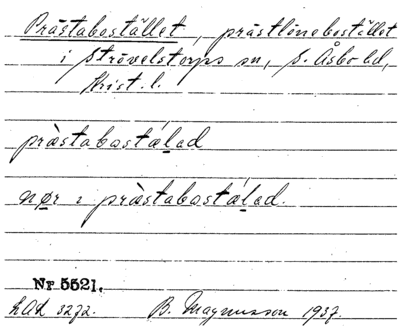 Prästabostället, prästlönebostället
i Strövelstorps sn, S. Åsbo hd,
Krist. l.
prästabostálad
nør i prästabostálad.
Nr 5521.
LAL 3272. B. Magnusson 1937.